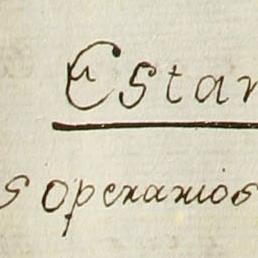 Estan
s operarios